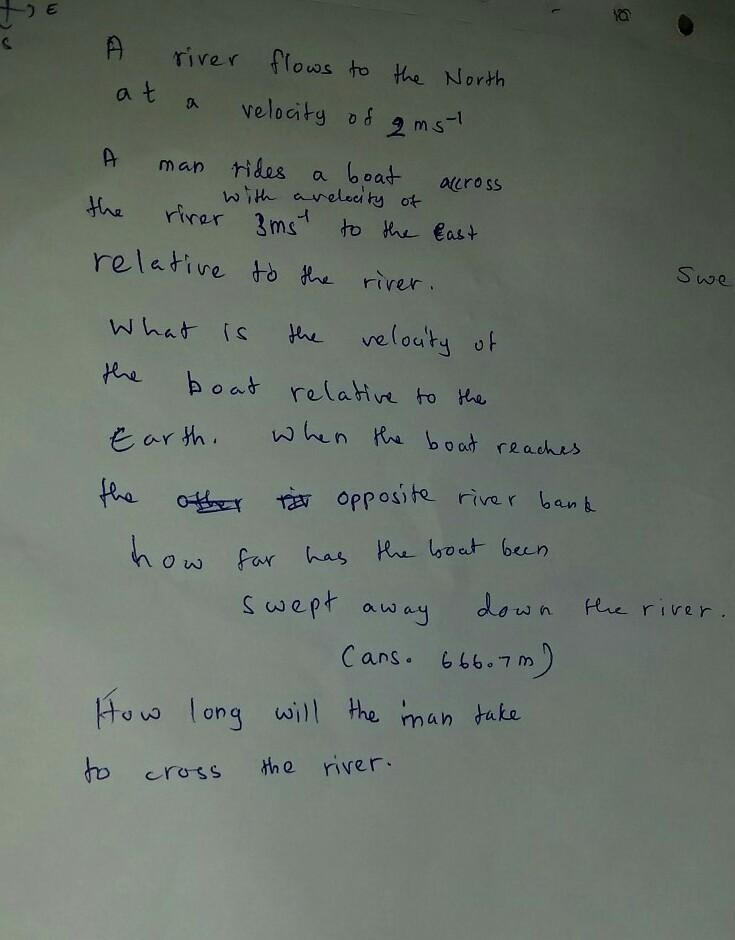 E
S
A river flows to the North
at a velocity of 2 ms⁻¹
A man rides a boat accross
with a velocity of
the river 3ms⁻¹ to the East
relative to the river.
Swe
What is the velocity of
the boat relative to the
Earth. When the boat reaches
the opposite river bank
how far has the boat been
swept away down the river.
(ans. 666.7 m)
How long will the man take
to cross the river.